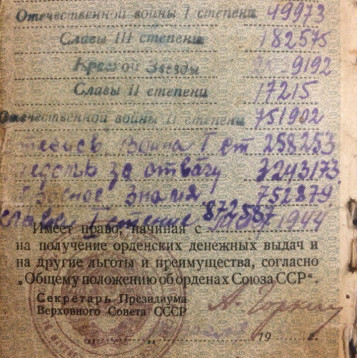 Отечественной войны I степени 49973
Славы III степени 182575
Красной Звезды 9192
Славы II степени 17215
Отечественной войны II степени 751902
война I ст 258253
за отвагу 7243173
Знамя 752879
Имеет право, начиная с 1944
на получение орденских денежных выдач и
на другие льготы и преимущества, согласно
„Общему положению об орденах Союза ССР“.
Секретарь Президиума
Верховного Совета СССР А. Горкин
19 г.